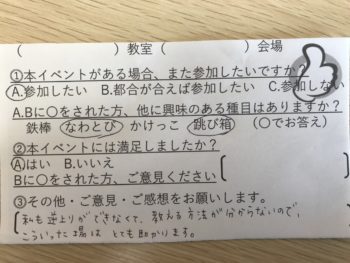 (　　　　　)教室(　　　　　)会場
①本イベントがある場合、また参加したいですか?
A.参加したい　B.都合が合えば参加したい　C.参加しない
A.Bに〇をされた方、他に興味のある種目はありますか?
鉄棒　なわとび　かけっこ　跳び箱　(〇でお答え)
②本イベントには満足しましたか?
A.はい　B.いいえ
Bに〇をされた方、ご意見ください
③その他・ご意見・ご感想をお願いします。
私も逆上りができなくて、教える方法が分からないので、
こういった場は とても助かります。